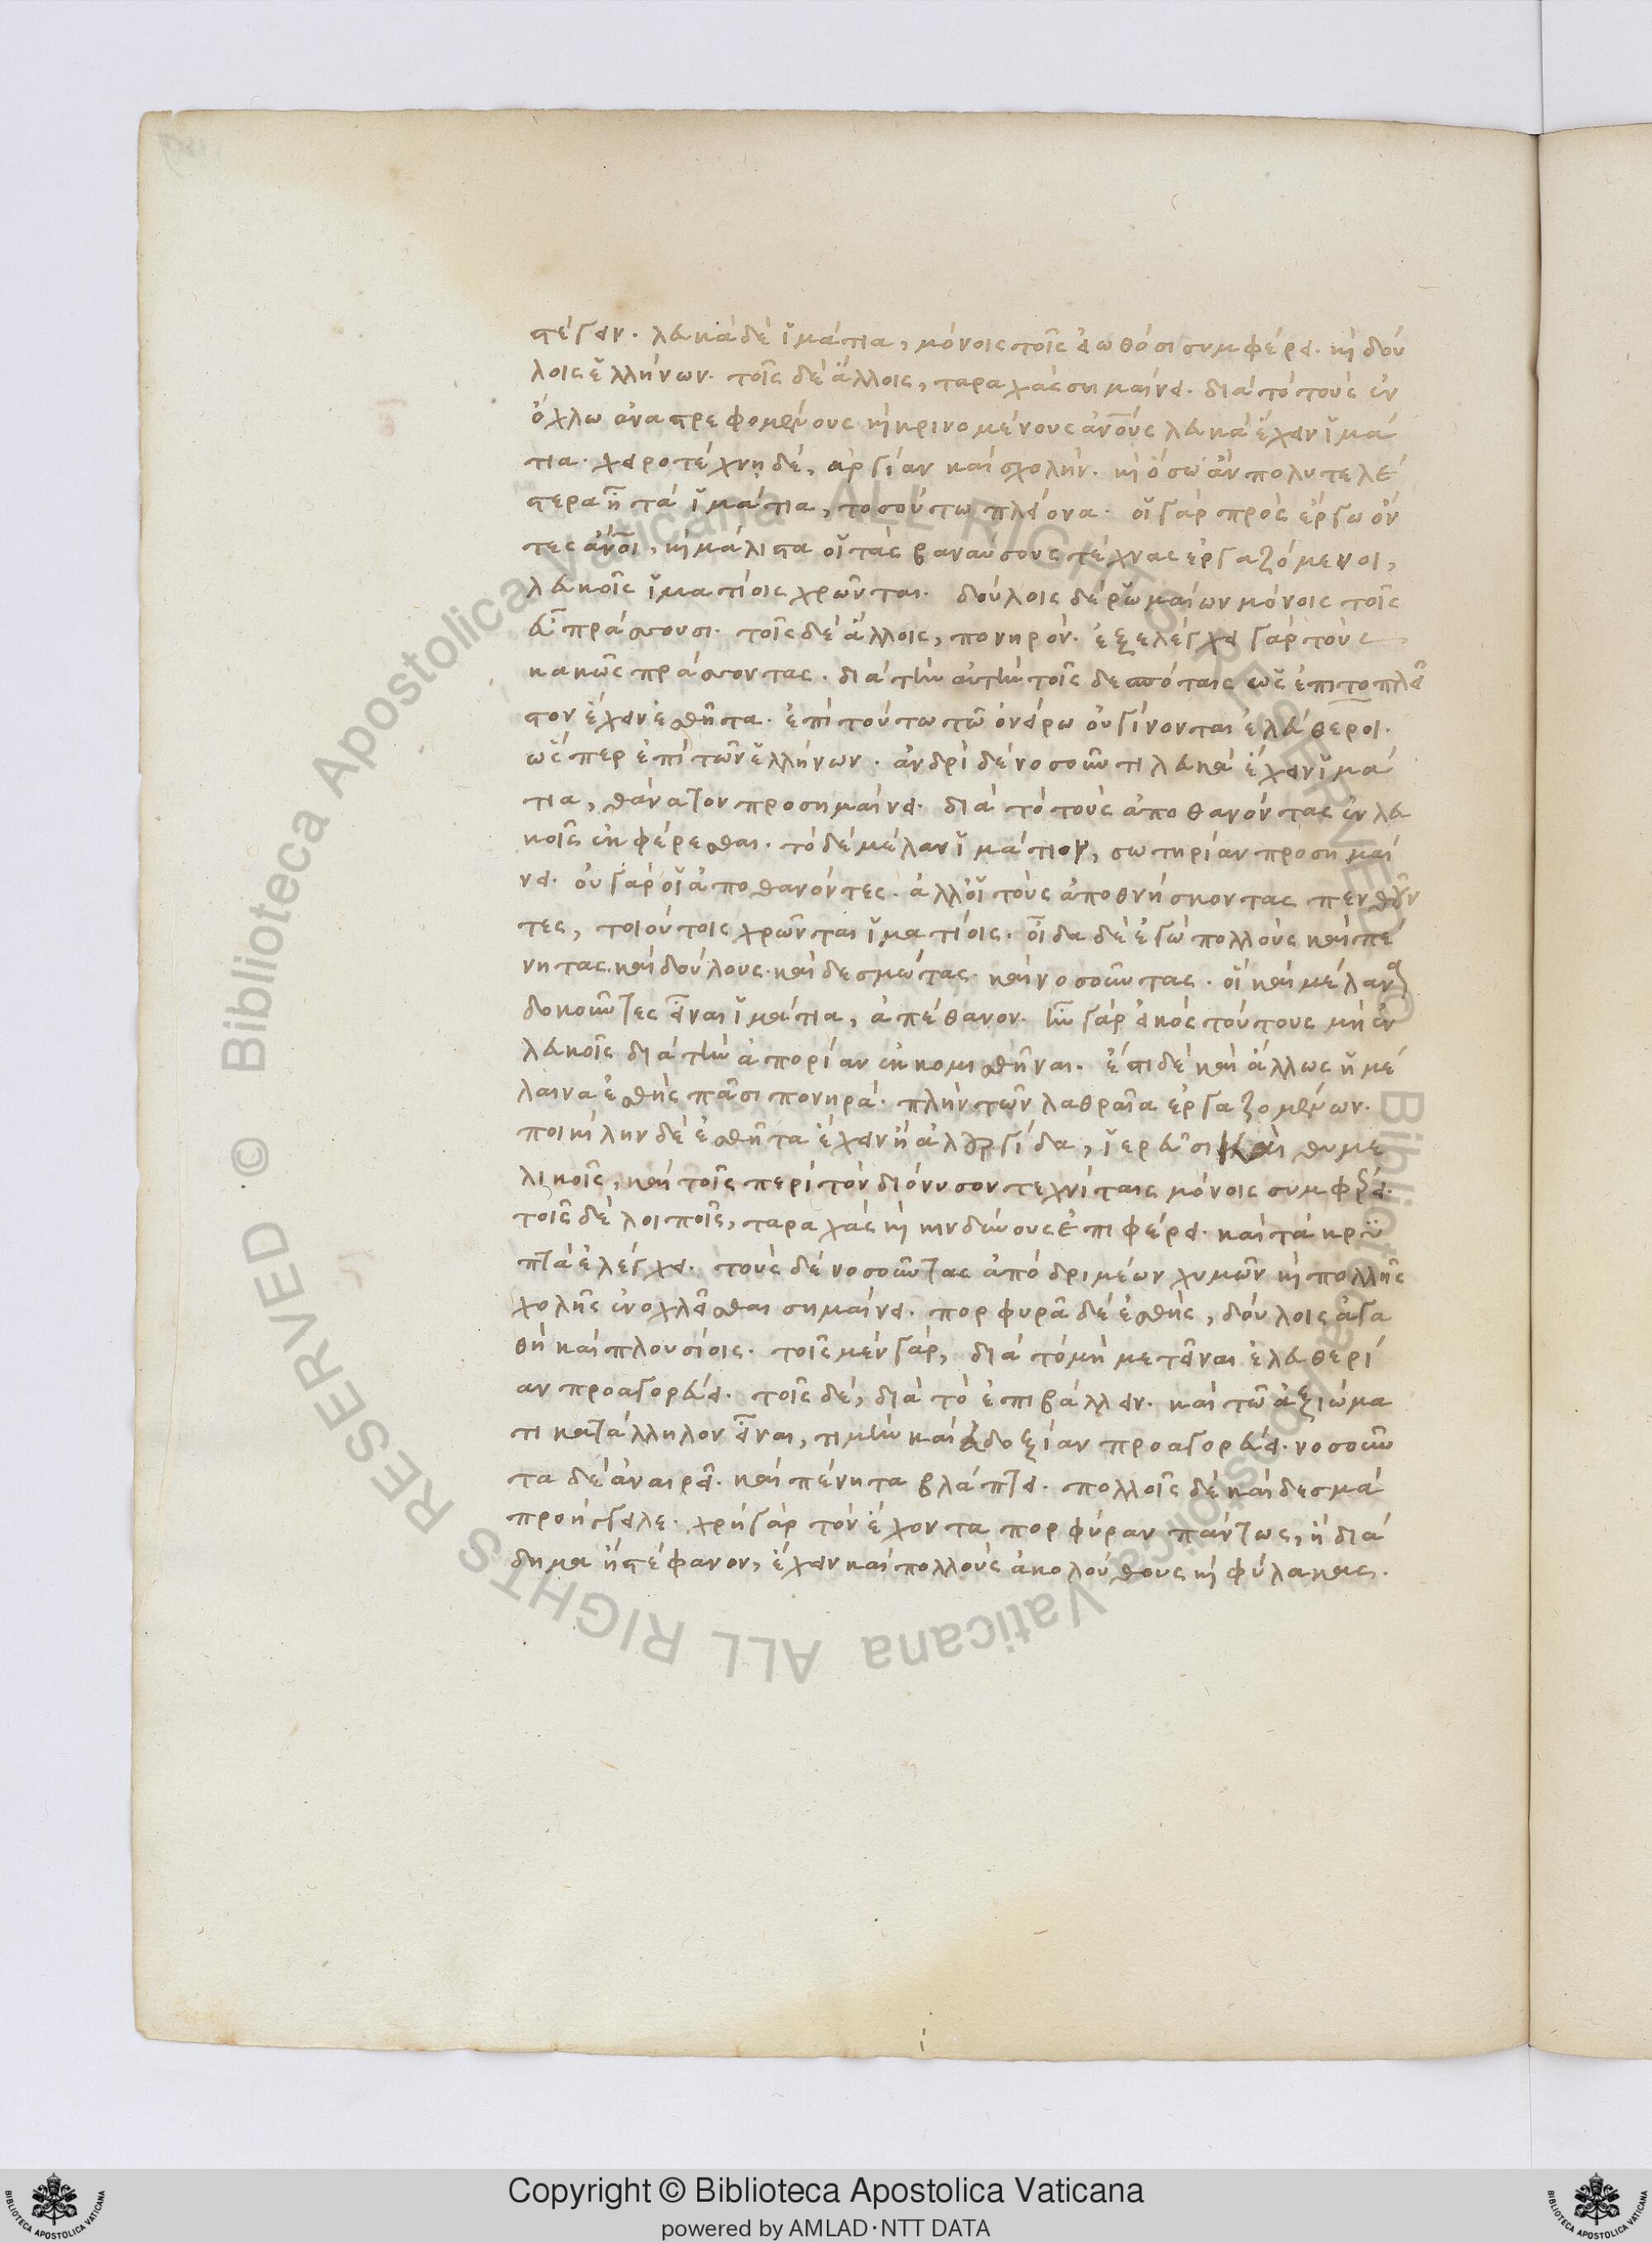 στέγειν. λευκὰ δὲ ἱμάτια, μόνοις τοῖς εἰωθόσι συμφέρει. καὶ δού
λοις ἑλλήνων. τοῖς δὲ ἄλλοις, ταραχὰς σημαίνει. διὰ τὸ τοὺς ἐν
ὄχλω ἀναστρεφομένους καὶ κρινομένους ἀνους λευκὰ ἔχειν ἱμά
τια. χειροτέχνη δὲ, ἀργίαν καὶ σχολήν. καὶ ὅσω ἂν πολυτελέ
στερα ἦ τὰ ἱμάτια, τοσούτω πλείονα. οἱ γὰρ πρὸς ἔργω ὄν
τες ἄνοι, καὶ μάλιστα οἱ τὰς βαναύσους τέχνας ἐργαζόμενοι,
λευκοῖς ἱματίοις χρῶνται. δούλοις δὲ ῥωμαίων μόνοις τοῖς
εὖ πράσσουσι. τοῖς δὲ ἄλλοις, πονηρόν. ἐξελέγχει γὰρ τοὺς
κακῶς πράσσοντας. διὰ τὴν αὐτὴν τοῖς δεσπόταις ὡς ἐπιτοπλεῖ
στον ἔχειν ἐσθῆτα. ἐπὶ τούτω τῶ ὀνείρω οὐ γίνονται ἐλεύθεροι.
ὥσπερ ἐπὶ τῶν ἑλλήνων. ἀνδρὶ δὲ νοσοῦντι λευκὰ ἔχειν ἱμά
τια, θάνατον προσημαίνει. διὰ τὸ τοὺς ἀποθανόντας ἐν λευ
κοῖς ἐκφέρεσθαι. τὸ δὲ μέλαν ἱμάτιον, σωτηρίαν προσημαί
νει. οὐ γὰρ οἱ ἀποθανόντες. ἀλλ' οἱ τοὺς ἀποθνήσκοντας πενθοῦν
τες, τοιούτοις χρῶνται ἱματίοις. οἶδα δὲ ἐγὼ πολλοὺς καὶ πέ
νητας. καὶ δούλους. καὶ δεσμώτας. καὶ νοσοῦντας. οἳ καὶ μέλανα
δοκοῦντες εἶναι ἱμάτια, ἀπέθανον. ἦν γὰρ εἰκὸς τούτους μὴ ἐν
λευκοῖς διὰ τὴν ἀπορίαν ἐκκομισθῆναι. ἔστι δὲ καὶ ἄλλως ἡ μέ
λαινα ἐσθὴς πᾶσι πονηρά. πλὴν τῶν λαθραῖα ἐργαζομένων.
ποικίλην δὲ ἐσθῆτα ἔχειν ἢ ἁλουργίδα, ἱερεῦσι καὶ θυμε
λικοῖς, καὶ τοῖς περὶ τὸν διόνυσον τεχνίταις μόνοις συμφέρει.
τοῖς δὲ λοιποῖς, ταραχὰς καὶ κινδύνους ἐπιφέρει. καὶ τὰ κρυ
πτὰ ἐλέγχει. τοὺς δὲ νοσοῦντας ἀπὸ δριμέων χυμῶν καὶ πολλῆς
χολῆς ἐνοχλεῖσθαι σημαίνει. πορφυρᾶ δὲ ἐσθὴς, δούλοις ἀγα
θὴ καὶ πλουσίοις. τοῖς μὲν γὰρ, διὰ τὸ μὴ μετεῖναι ἐλευθερί
αν προαγορεύει. τοῖς δὲ, διὰ τὸ ἐπιβάλλειν. καὶ τῶ ἀξιώμα
τι κατάλληλον εἶναι, τιμὴν καὶ εὐδοξίαν προαγορεύει. νοσοῦν
τα δὲ ἀναιρεῖ. καὶ πένητα βλάπτει. πολλοῖς δὲ καὶ δεσμὰ
προήγγειλε. χρὴ γὰρ τὸν ἔχοντα πορφύραν πάντως, ἢ διά
δημα ἢ στέφανον, ἔχειν καὶ πολλοὺς ἀκολούθους καὶ φύλακας.
© Biblioteca Apostolica Vaticana ALL RIGHTS RESERVED
© Biblioteca Apostolica Vaticana ALL RIGHTS RESERVED
Copyright © Biblioteca Apostolica Vaticana
powered by AMLAD·NTT DATA
BIBLIOTECA APOSTOLICA VATICANA
BIBLIOTECA APOSTOLICA VATICANA